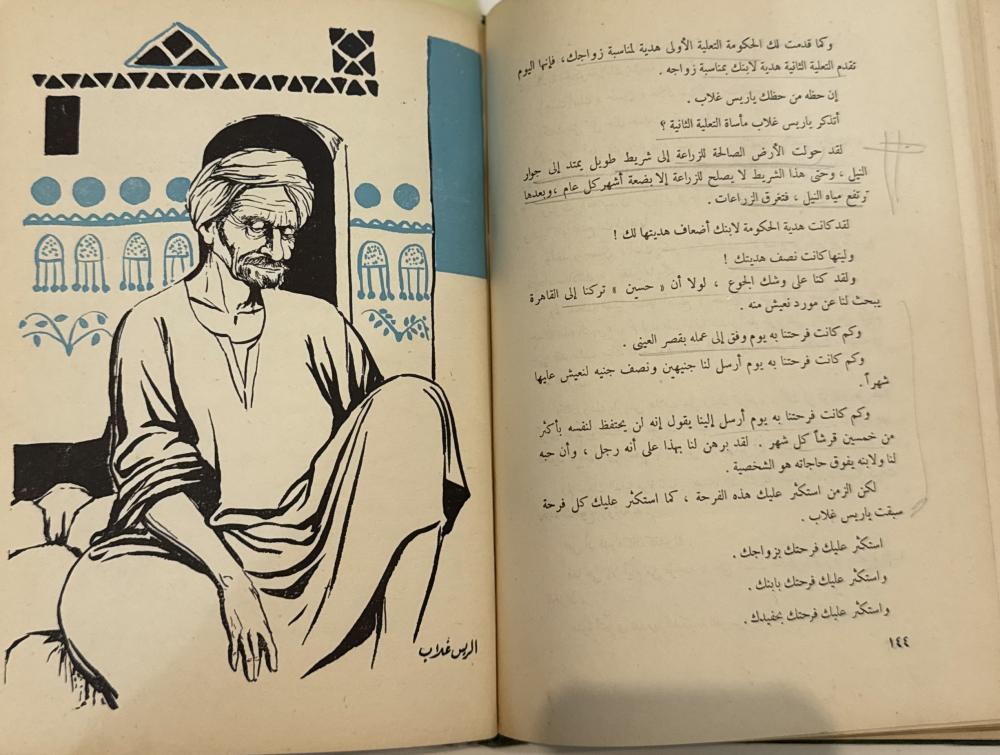 الريس غلاب
وكما قدمت لك الحكومة التعلية الأولى هدية لمناسبة زواجك، فإنها اليوم
تقدم التعلية الثانية هدية لابنك بمناسبة زواجه .
إن حظه من حظك ياريس غلاب .
أتذكر ياريس غلاب مأساة التعلية الثانية ؟
لقد حولت الأرض الصالحة للزراعة إلى شريط طويل يمتد إلى جوار
النيل ، وحتى هذا الشريط لا يصلح للزراعة إلا بضعة أشهر كل عام ، وبعدها
ترتفع مياه النيل ، فتغرق الزراعات .
لقد كانت هدية الحكومة لابنك أضعاف هديتها لك !
وليتها كانت نصف هديتك !
ولقد كنا على وشك الجوع ، لولا أن « حسين » تركنا إلى القاهرة
يبحث لنا عن مورد نعيش منه .
وكم كانت فرحتنا به يوم وفق إلى عمله بقصر العيني .
وكم كانت فرحتنا به يوم أرسل لنا جنيهين ونصف جنيه لنعيش عليها
شهراً .
وكم كانت فرحتنا به يوم أرسل إلينا يقول إنه لن يحتفظ لنفسه بأكثر
من خمسين قرشاً كل شهر . لقد برهن لنا بهذا على أنه رجل ، وأن حبه
لنا ولابنه يفوق حاجاته هو الشخصية .
لكن الزمن استكثر عليك هذه الفرحة ، كما استكثر عليك كل فرحة
سبقت ياريس غلاب .
استكثر عليك فرحتك بزواجك .
واستكثر عليك فرحتك بابنك .
واستكثر عليك فرحتك بحفيدك .
١٤٤